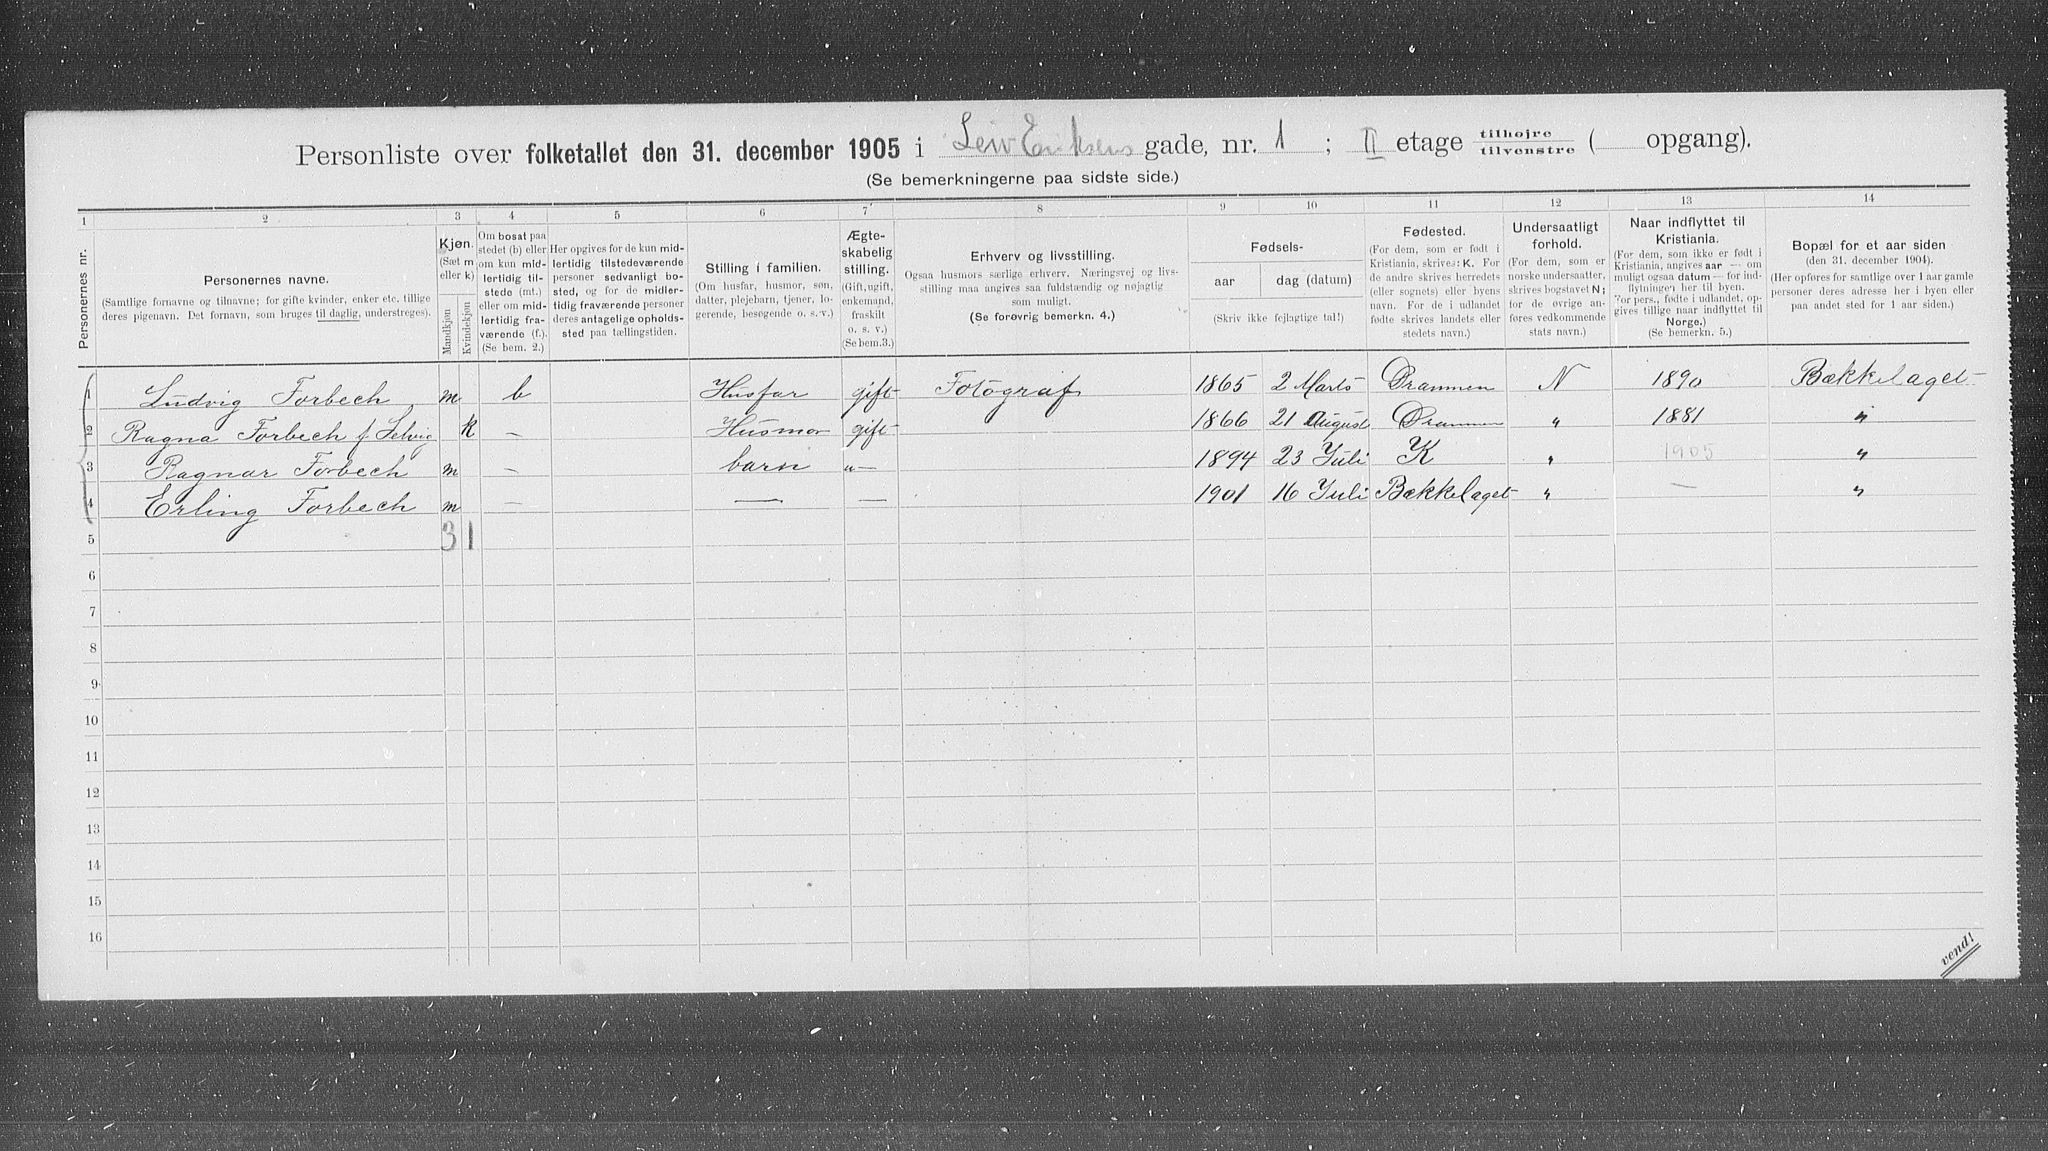 Personliste over folketallet den 31. december 1905 i Leiv Eriksens gade, nr. 1 ; II etage tilhøjre tilvenstre ( opgang).
(Se bemerkningerne paa sidste side.)
1 2 3 4 5 6 7 8 9 10 11 12 13 14
Personernes nr.
Personernes navne.
(Samtlige fornavne og tilnavne; for gifte kvinder, enker etc. tillige
deres pigenavn. Det fornavn, som bruges til daglig, understreges).
Kjøn.
(Sæt m
eller k)
Mandkjøn
Kvindekjøn
Om bosat paa
stedet (b) eller
om kun mid-
lertidig til-
stede (mt.)
eller om mid-
lertidig fra-
værende (f.).
(Se bem. 2.)
Her opgives for de kun mid-
lertidig tilstedeværende
personer sedvanligt bo-
sted, og for de midler-
tidig fraværende personer
deres antagelige opholds-
sted paa tællingstiden.
Stilling i familien.
(Om husfar, husmor, søn,
datter, plejebarn, tjener, lo-
gerende, besøgende o. s. v.)
Ægte-
skabelig
stilling.
(Gift, ugift,
enkemand,
fraskilt
o. s. v.)
(Se bem.3.)
Erhverv og livsstilling.
Ogsaa husmors særlige erhverv. Næringsvej og livs-
stilling maa angives saa fuldstændig og nøjagtig
som muligt.
(Se forøvrig bemerkn. 4.)
Fødsels-
aar
dag (datum)
(Skriv ikke fejlagtige tal!)
Fødested.
(For dem, som er født i
Kristiania, skrives: K. For
de andre skrives herredets
(eller sognets) eller byens
navn. For de i udlandet
fødte skrives landets eller
stedets navn.)
Undersaatligt
forhold.
(For dem, som er
norske undersaatter,
skrives bogstavet N;
for de øvrige an-
føres vedkommende
stats navn.)
Naar indflyttet til
Kristiania.
(For dem, som ikke er født i
Kristiania, angives aar — om
muligt ogsaa datum — for ind-
flytningen her til byen.
For pers., fødte i udlandet, op-
gives tillige naar indflyttet til
Norge.)
(Se bemerkn. 5.)
Bopæl for et aar siden
(den 31. december 1904).
(Her opføres for samtlige over 1 aar gamle
personer deres adresse her i byen eller
paa andet sted for 1 aar siden.)
1 Ludvig Forbech m b Husfar gift Fotograf 1865 2 Marts Drammen N 1890 Bækkelaget
2 Ragna Forbech f. Selvig k — Husmor gift 1866 21 August Drammen " 1881 "
3 Ragnar Forbech m — barn u— 1894 23 Juli K " 1905 "
4 Erling Forbech m — — — 1901 16 Juli Bækkelaget " — "
5 3 1
6
7
8
9
10
11
12
13
14
15
16
vend!